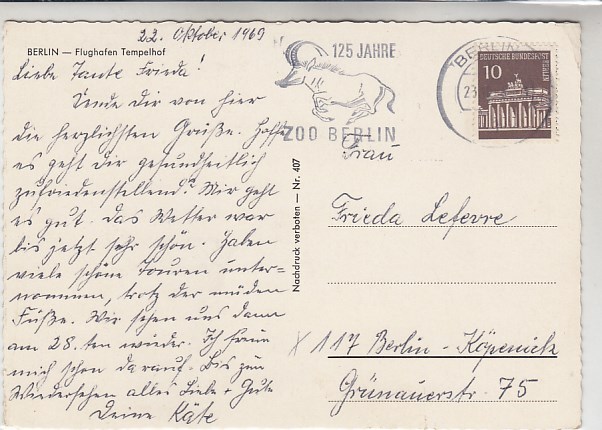 22. Oktober 1969
BERLIN — Flughafen Tempelhof
Liebe Tante Frieda!
Sende Dir von hier
die herzlichsten Grüße. Hoffe
es geht dir gesundheitlich
zufriedenstellend. Mir geht
es gut. Das Wetter war
bis jetzt sehr schön. Haben
viele schöne Touren unter=
nommen, trotz der müden
Füße. Wir sehen uns dann
am 28.ten wieder. Ich freue
mich schon darauf. Bis zum
Wiedersehen alles Liebe + Gute
Deine Käte
Nachdruck verboten — Nr. 407
125 JAHRE
ZOO BERLIN
BERLIN
23
DEUTSCHE BUNDESPOST
BERLIN
10
Frau
Frieda Lefevre
x 117 Berlin - Köpenick
Grünauerstr. 75